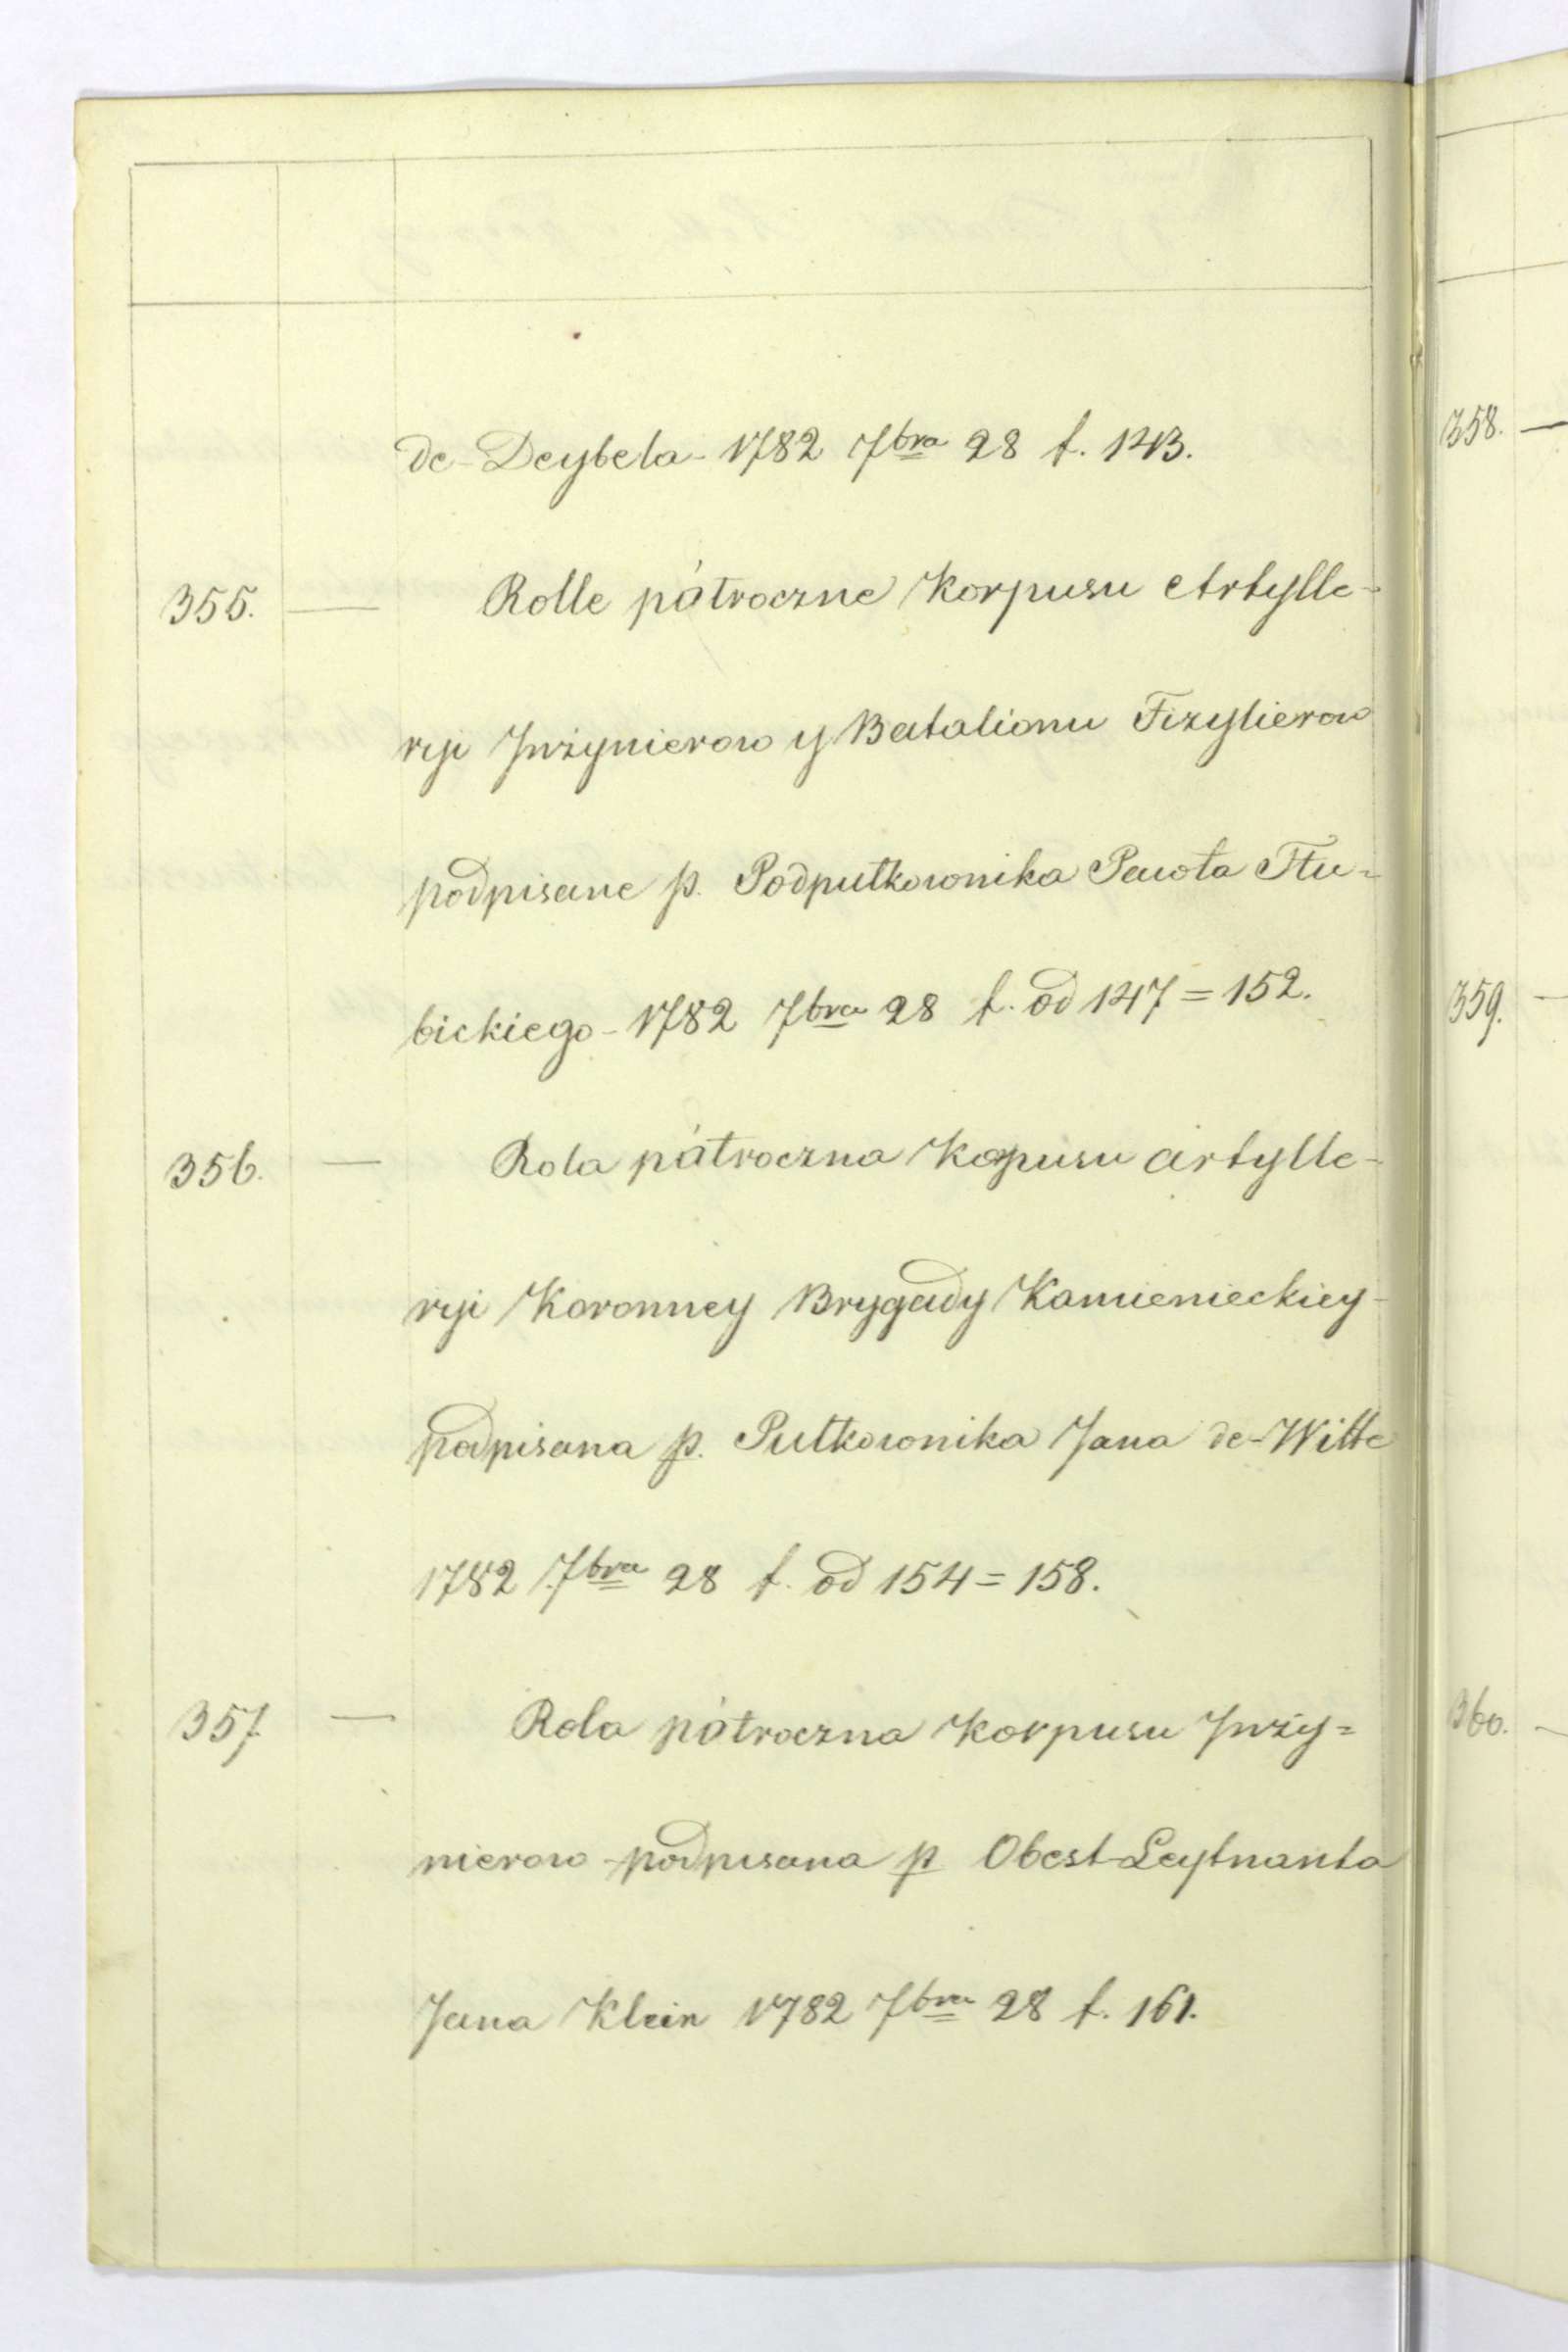 de-Deybela-1782 7bra 28 f. 143.
355. — Rolle pòłroczne Korpusu Artylle-
ryi Jnżynierow y Batalionu Fizylierow
podpisane p. Podpułkownika Pawła Tłu=
bickiego-1782 7bra 28 f. od 147=152.
356. — Rola pòłroczna Korpusu Artylle-
ryi Koronney Brygady Kamienieckiey-
podpisana p. Pułkownika Jana de-Witte
1782 7bra 28 f. od 154=158.
357 — Rola pòłroczna Korpusu Jnży=
nierow-podpisana p Obest-Leytnanta
Jana Klein 1782 7bra 28 f. 161.
358. —
359. —
360. —